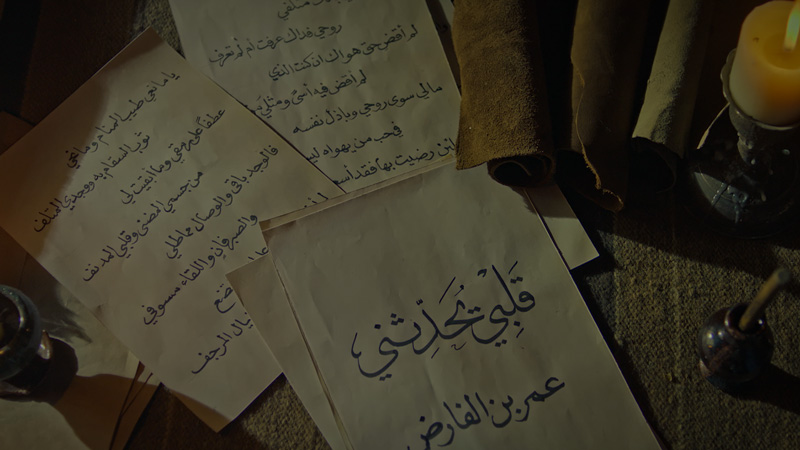 قَلبِي يُحَدِّثني
عمر بن الفارض
روحي فداك عرفت أم لم تعرف
لم أقض حق هواك ان كنت الذي
لم أقض فيه أسى ومثلي
مالي سوى روحي وباذل نفسه
في حب من يهواه
رضيت بها فقد
يا مانعي طيب المنام ومانحي
ثوب السقام به ووجدي المتلف
عطفاً على رمقي وما أبقيت لي
من جسمي المضنى وقلبي المدنف
فالوجد باق والوصال مماطلي
والصبر فان واللقاء مسوفي
المرجف